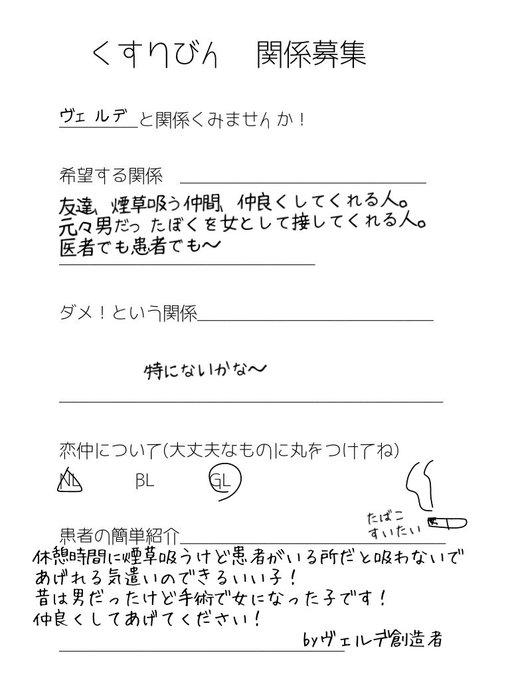 くすりびん　関係募集
ヴェルデと関係くみませんか！
希望する関係
友達、煙草吸う仲間、仲良くしてくれる人。
元々男だったぼくを女として接してくれる人。
医者でも患者でも〜
ダメ！という関係
特にないかな〜
恋仲について(大丈夫なものに丸をつけてね)
NL　BL　GL
たばこ
すいたい
患者の簡単紹介
休憩時間に煙草吸うけど患者がいる所だと吸わないで
あげれる気遣いのできるいい子！
昔は男だったけど手術で女になった子です！
仲良くしてあげてください！
byヴェルデ創造者